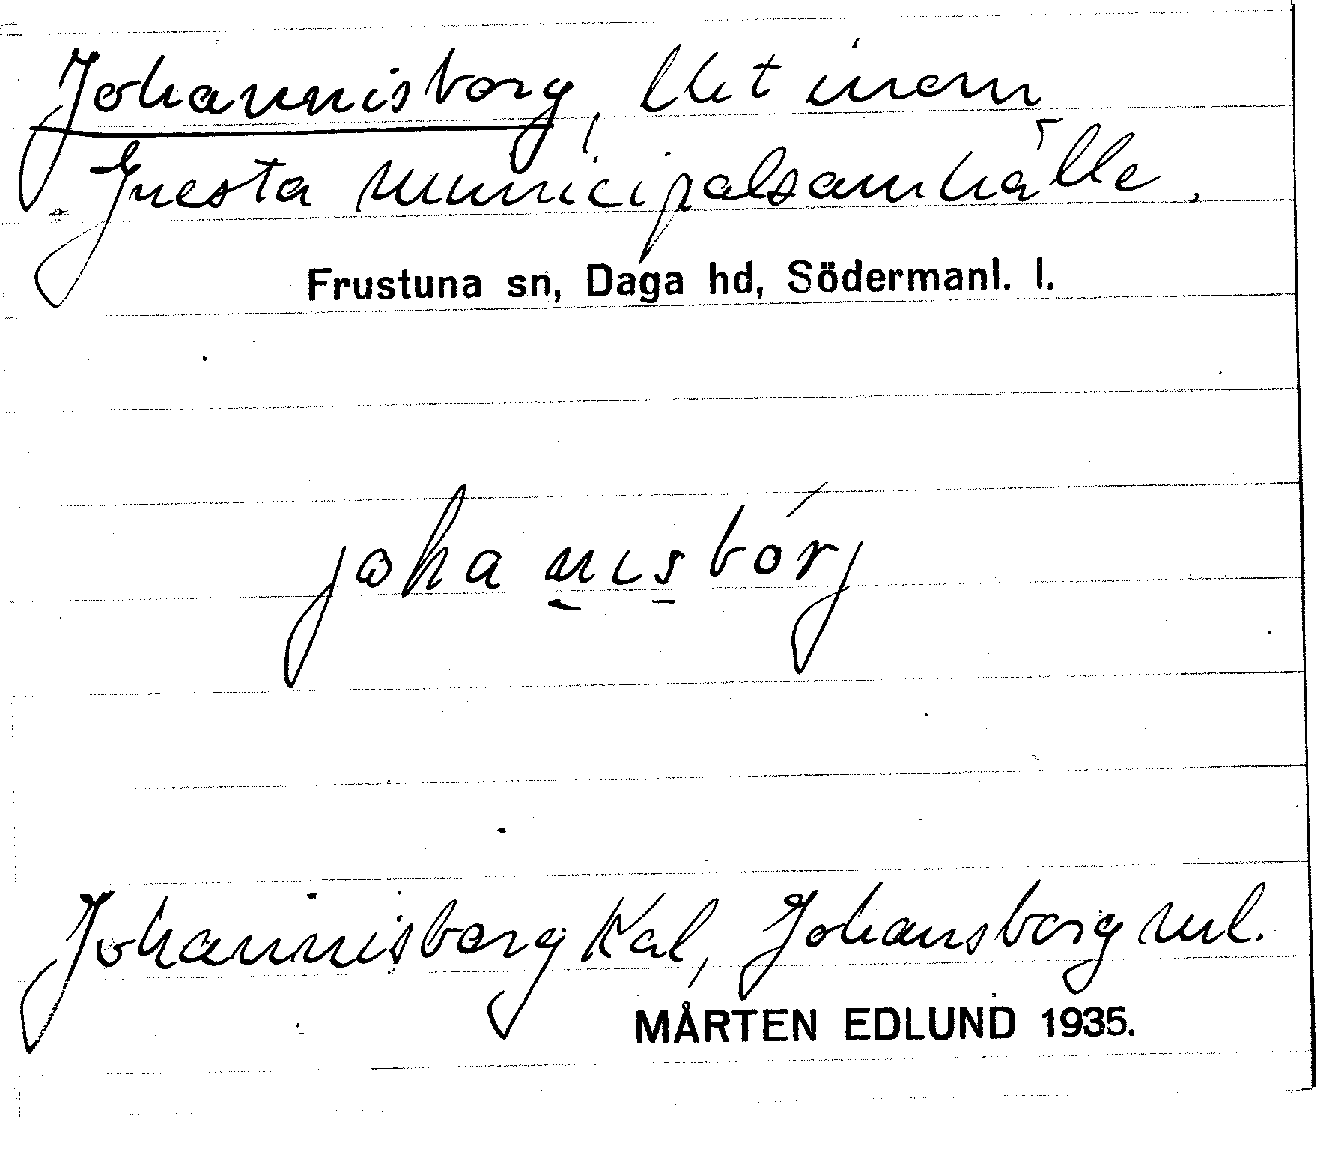 Johannisborg, lht inom
Gnesta municipalsamhälle.
Frustuna sn, Daga hd, Södermanl. l.
johanısbórj
Johannisborg Kal, Johansborg ml.
MÅRTEN EDLUND 1935.